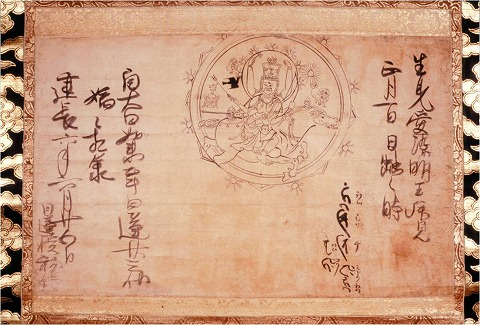 生身愛染明王拝見
正月一日日蝕之時
自大日如来至日蓮廿三代
嫡々相承
建長六年六月廿五日
日蓮授新仏